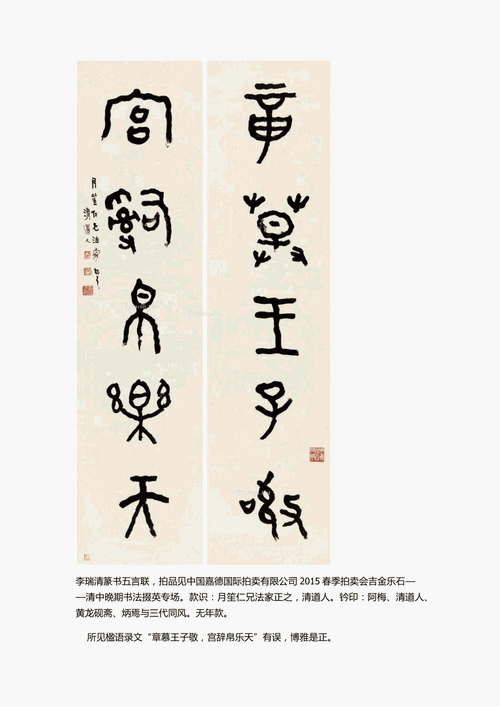 章慕王子敬
宮辭帛樂天
月笙仁兄法家正之
清道人
李瑞清篆书五言联，拍品见中国嘉德国际拍卖有限公司 2015 春季拍卖会吉金乐石—
—清中晚期书法掇英专场。款识：月笙仁兄法家正之，清道人。钤印：阿梅、清道人、
黄龙砚斋、炳焉与三代同风。无年款。
所见楹语录文“章慕王子敬，宫辞帛乐天”有误，博雅是正。